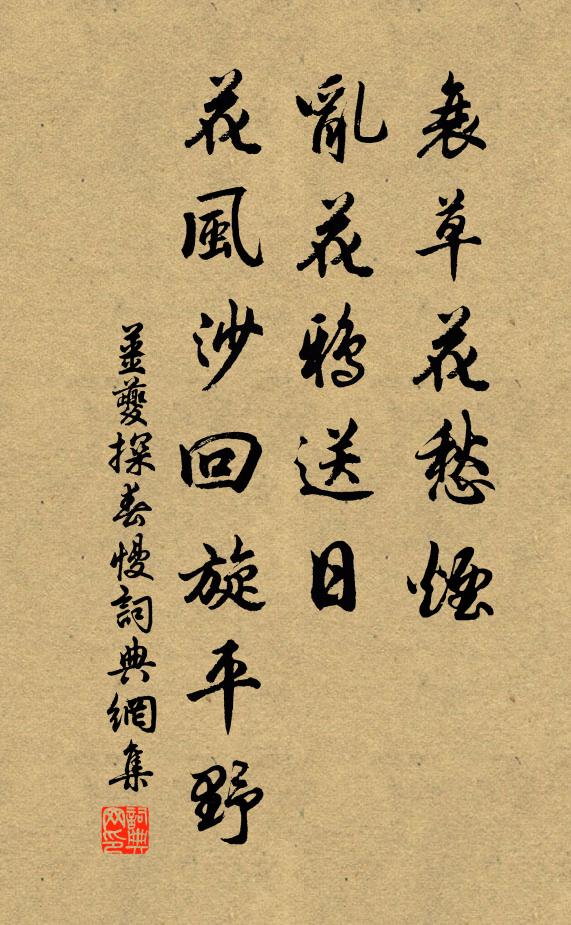 衰草花愁煙
亂花鴉送日
花風沙回旋平野
薑夔探春慢詞典網集
詞典网印